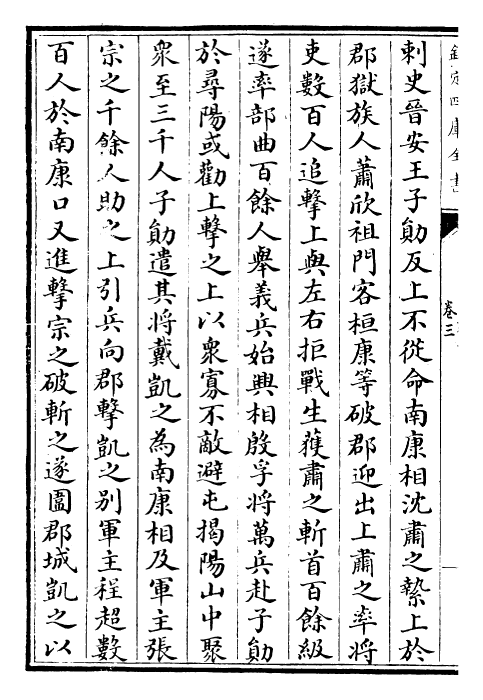 欽定四庫全書
卷三
刺史晉安王子勛反上不從命南康相沈肅之縶上於
郡獄族人蕭欣祖門客桓康等破郡迎出上肅之率將
吏數百人追擊上與左右拒戰生獲肅之斬首百餘級
遂率部曲百餘人舉義兵始興相殷孚將萬兵赴子勛
於尋陽或勸上擊之上以衆寡不敵避屯揭陽山中聚
衆至三千人子勛遣其將戴凱之為南康相及軍主張
宗之千餘人助之上引兵向郡擊凱之别軍主程超數
百人於南康口又進擊宗之破斬之遂圍郡城凱之以